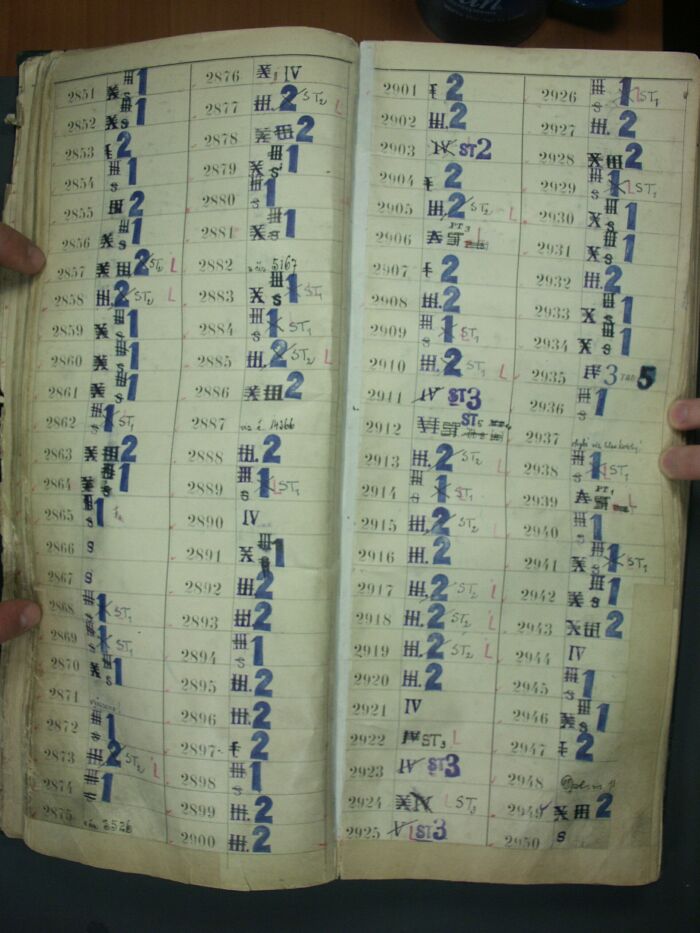 2851 X III S 1
2852 X III S 1
2853 I 2
2854 III S 1
2855 III 2
2856 X III S 1
2857 X III 2 ST2 L
2858 III. 2 ST2 L
2859 X III S 1
2860 X III S 1
2861 X III S 1
2862 III S 1 ST1
2863 X III 2
2864 X III S 1
2865 III S 1
2866 S
2867 S
2868 III S 1 ST1
2869 III S 1 ST1
2870 X III S 1
2871
2872 III S 1
2873 III 2 ST2 L
2874 III S 1
2875
2876 X IV
2877 III. 2 ST2 L
2878 X III 2
2879 X III S 1
2880 III S 1
2881 X III S 1
2882 5167
2883 X III S 1 ST1
2884 III S 1 ST1
2885 III. 2 ST2 L
2886 X III 2
2887 viz č. 14266
2888 III. 2
2889 III S 1 L ST1
2890 IV
2891 X III S 1
2892 III. 2
2893 III. 2
2894 III S 1
2895 III. 2
2896 III. 2
2897 I 2
2898 III S 1
2899 III. 2
2900 III. 2
2901 I 2
2902 III. 2
2903 IV ST2
2904 I 2
2905 III. 2 ST2 L
2906 A ST PT3 L
2907 I 2
2908 III. 2
2909 III S 1 ST1
2910 III. 2 ST1 L
2911 IV ST3
2912 VI ST ST5
2913 III. 2 ST2 L
2914 III S 1 ST1
2915 III. 2 ST2
2916 III. 2
2917 III. 2 ST2 L
2918 III. 2 ST2 L
2919 III. 2 ST2 L
2920 III. 2
2921 IV
2922 IV ST3 L
2923 IV ST3
2924 X IV L ST3
2925 V L ST3
2926 III S 1 L ST1
2927 III. 2
2928 X III 2
2929 III S 1 L ST1
2930 X III S 1
2931 X III S 1
2932 III. 2
2933 X III S 1
2934 X III S 1
2935 IV 3 5
2936 III S 1
2937
2938 III S 1 L ST1
2939 A ST PT1 L
2940 III S 1
2941 X III S 1 ST1
2942 X III S 1
2943 X III 2
2944 IV
2945 III S 1
2946 X III S 1
2947 I 2
2948
2949 X III 2
2950 S